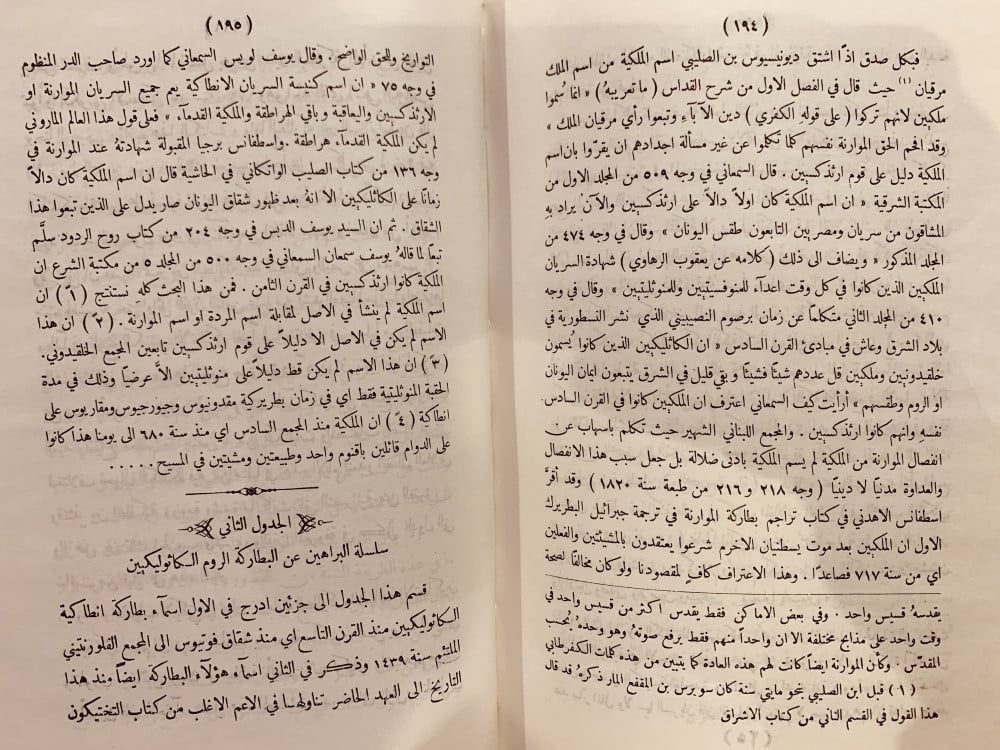 (١٩٤)
فبكل صدق اذًا اشتق ديونيسيوس بن الصليبي اسم الملكية من اسم الملك
مرقيان (١) حيث قال في الفصل الاول من شرح القداس (ما تعريبهُ) « انما سُموا
ملكيين لانهم تركوا (على قولهِ الكفري) دين الآباء وتبعوا رأي مرقيان الملك »
وقد افحم الحق الموارنة نفسهم كما تكلموا عن غير مسألة اجدادهم ان يقرّوا بان اسم
الملكية دليل على قوم ارثذكسيين . قال السمعاني في وجه ٥٠٩ من المجلد الاول من
المكتبة الشرقية « ان اسم الملكية كان اولاً دالاً على ارثذكسيين والآن يراد به
المشاقون من سريان ومصريين التابعون طقس اليونان » وقال في وجه ٤٧٤ من
المجلد المذكور « ويضاف الى ذلك (كلامه عن يعقوب الرهاوي) شهادة السريان
الملكيين الذين كانوا في كل وقت اعدآء للمنوفسيتيين وللمنوثليتيين » وقال في وجه
٤١٠ من المجلد الثاني متكلماً عن زمان برصوم النصيبيني الذي نشر النسطورية في
بلاد الشرق وعاش في مبادئ القرن السادس « ان الكاثليكيين الذين كانوا يُسمون
خلقيدونيين وملكيين قل عددهم شيئًا فشيئًا وبقي قليل في الشرق يتبعون ايمان اليونان
او الروم وطقسهم » أرأيت كيف السمعاني اعترف ان الملكيين كانوا في القرن السادس
نفسه وانهم كانوا ارثذكسيين . والمجمع اللبناني الشهير حيث تكلم باسهاب عن
انفصال الموارنة من الملكية لم يسم الملكية بادنى ضلالة بل جعل سبب هذا الانفصال
والعداوة مدنيًا لا دينيًا (وجه ٢١٨ و ٢١٦ من طبعة سنة ١٨٢٠) وقد أقرَّ
اسطفانس الاهدني في كتاب تراجم بطاركة الموارنة في ترجمة جبرائيل البطريرك
الاول ان الملكيين بعد موت يسطنيان الاخرم شرعوا يعتقدون بالمشيئتين والفعلين
اي من سنة ٧١٧ فصاعدًا . وهذا الاعتراف كافٍ لمقصودنا ولو كان مخالفًا لصحة
يقدسهُ قسيس واحد . وفي بعض الاماكن فقط يقدس اكثر من قسيس واحد في
وقت واحد على مذابح مختلفة الا ان واحداً منهم فقط يرفع صوتهُ وهو وحدهُ يُحسب
المقدّس . وكأن الموارنة ايضًا كانت لهم هذه العادة كما يتبين من هذه كلمات الكفرطابي
(١) قبل ابن الصليبي بنحو مايتي سنة كان سويرس بن المقفع المار ذكرهُ قد قال
هذا القول في القسم الثاني من كتاب الاشراق
(١٩٥)
التواريخ وللحق الواضح . وقال يوسف لويس السمعاني كما اورد صاحب الدر المنظوم
في وجه ٧٥ « ان اسم كنيسة السريان الانطاكية يعم جميع السريان الموارنة او
الارثذكسيين واليعاقبة وباقي الهراطقة والملكية القدمآء » فعلى قول هذا العالم الماروني
لم يكن الملكية القدمآء هراطقة . واسطفانس برجيا المقبولة شهادتهُ عند الموارنة في
وجه ١٣٦ من كتاب الصليب الواتكاني في الحاشية قال ان اسم الملكية كان دالاً
زمانًا على الكاثليكيين الا انهُ بعد ظهور شقاق اليونان صار يدل على الذين تبعوا هذا
الشقاق . ثم ان السيد يوسف الدبس في وجه ٢٠٤ من كتاب روح الردود سلَّم
تبعًا لما قالهُ يوسف سمعان السمعاني في وجه ٥٠٠ من المجلد ٥ من مكتبة الشرع ان
الملكية كانوا ارثذكسيين في القرن الثامن . فمن هذا البحث كله نستنتج (١ً) ان
اسم الملكية لم ينشأ في الاصل لمقابلة اسم المردة او اسم الموارنة . (٢ً) ان هذا
الاسم لم يكن في الاصل الا دليلاً على قوم ارثذكسيين تابعين المجمع الخلقيدوني.
(٣ً) ان هذا الاسم لم يكن قط دليلاً على منوثليتيين الاَّ عرضيًا وذلك في مدة
الحقبة المنوثليتية فقط اي في زمان بطريركة مقدونيوس وجيورجيوس ومقاريوس على
انطاكة (٤ً) ان الملكية منذ المجمع السادس اي منذ سنة ٦٨٠ الى يومنا هذا كانوا
على الدوام قائلين باقنوم واحد وطبيعتين ومشيئتين في المسيح . . . . .
الجدول الثاني
سلسلة البراهين عن البطاركة الروم الكاثوليكيين
قسم هذا الجدول الى جزئين ادرج في الاول اسمآء بطاركة انطاكية
الكاثوليكيين منذ القرن التاسع اي منذ شقاق فوتيوس الى المجمع الفلورنتيني
الملتئم سنة ١٤٣٩ وذكر في الثاني اسمآء هؤلآء البطاركة ايضًا منذ هذا
التاريخ الى العهد الحاضر تناولهــا في الاعم الاغلب من كتاب التختيكون